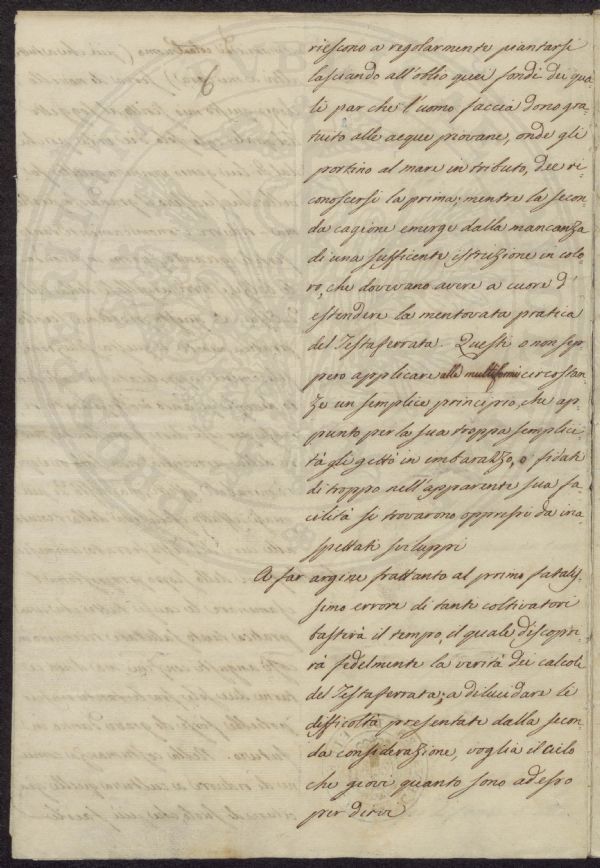 6
riescono a regolarmente piantarsi
lasciando all'oblio quei fondi dei qua-
li par che l'uomo faccia dono gra-
tuito alle acque piovane, onde gli
portino al mare in tributo, dee ri-
conoscersi la prima; mentre la secon-
da cagione emerge dalla mancanza
di una sufficente istruzione in colo
ro, che dovevano avere a cuore d'
estendere la mentovata pratica
del Testaferrata. Questi o non sep-
pero applicare alle multiformi circostan-
ze un semplice principio, che ap-
punto per la sua troppa semplici
tà gli gettò in imbarazzo, o fidati
di troppo nell'apparente sua fa-
cilità si trovarono oppressi da ina-
spettati sviluppi
A far argine frattanto al primo fatalis-
simo errore di tanti coltivatori
basterà il tempo, il quale discopri-
rà fedelmente la verità dei calcoli
del Testaferrata; a dilucidare le
difficoltà presentate dalla secon-
da considerazione, voglia il cielo
che giovi quanto sono adesso
per dirvi